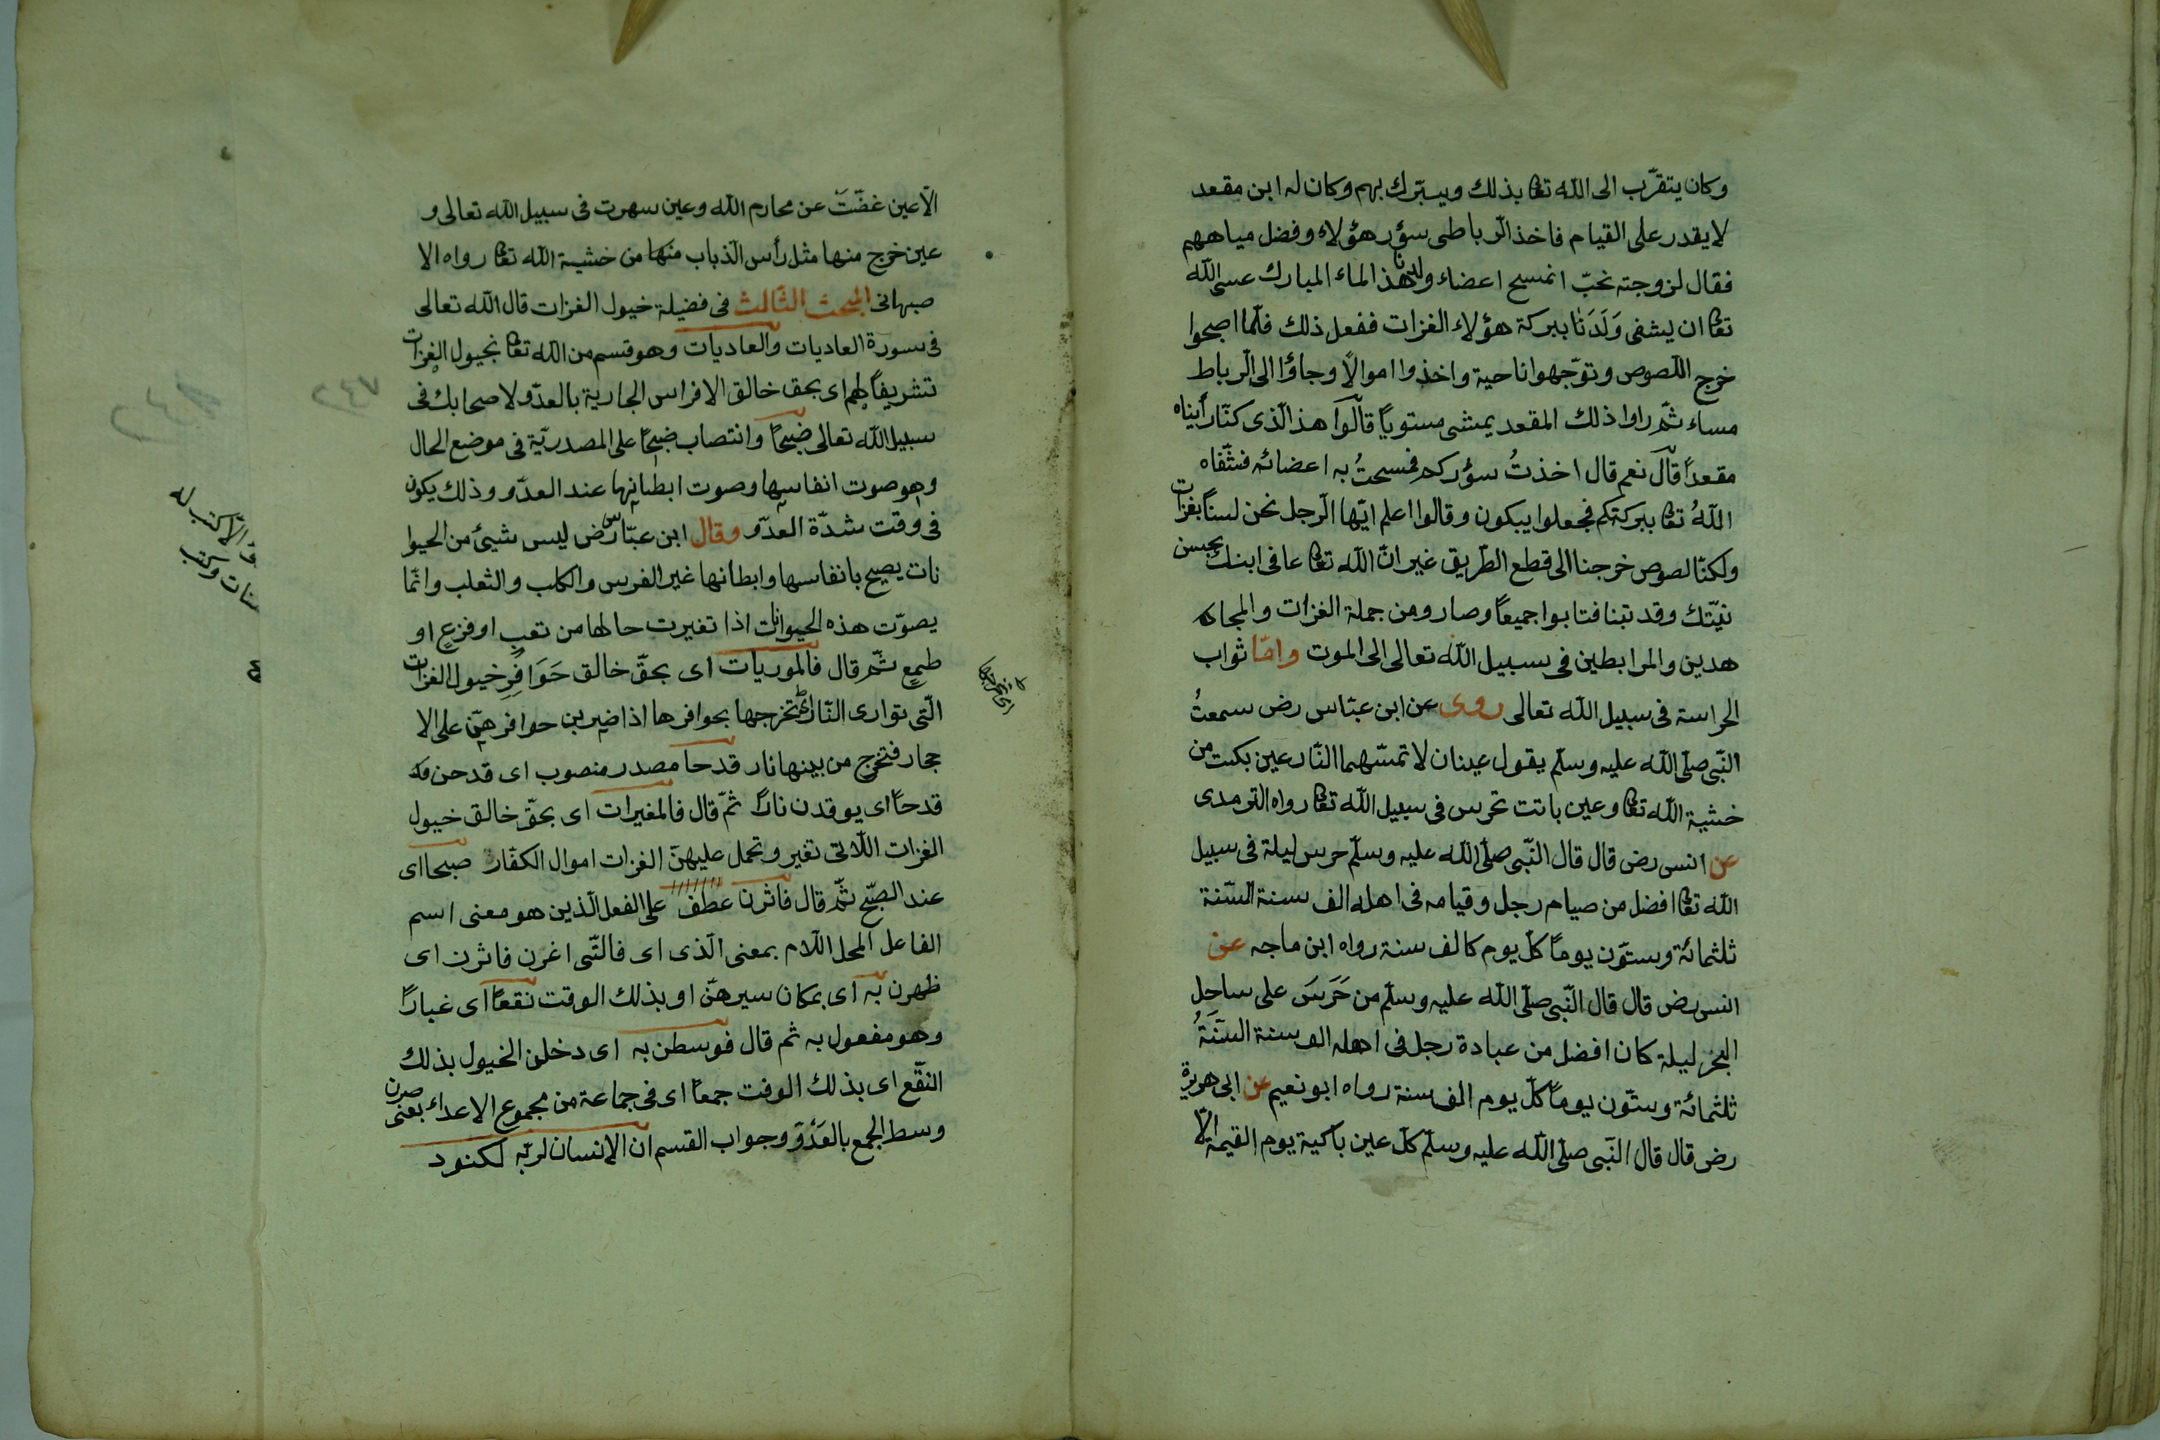 وكان يتقرّب الى الله تعا بذلك ويتبّرك بهم وكان له ابن مقعد
لا يقدر على القيام فاخذ الرباطى سؤر هؤلاء وفضل مياههم
فقال لزوجته نحبّ انمسح اعضاء ولدنا هذ الماء المبارك عسى الله
تعا ان يشفى وَلَدَنا ببركة هؤلاء الغزات ففعل ذلك فلّما اصبحوا
خرج اللصوص وتوّجهوا ناحية واخذوا اموالًا وجاؤا الى الرباط
مساء ثمّ راوا ذلك المقعد يمشى مستويًا قالّوا هذ الّذى كنّا رأيناه
مقعدًا قال نعم قال اخذتُ سؤركم فمسحتُ به اعضائه فشّفاه
اللهُ تعا ببركتكم فجعلوا يبكون وقالوا اعلم ايّها الّرجل نحن لسنا بغزات
ولكنّا لصوص خرجنا الى قطع الطّريق غير انّ الله تعا عافى ابنك بحسن
نيّتك وقد تبنا فتابوا جميعًا وصارو من جملة الغزات والمجا
هدين والمرابطين فى سبيل الله تعالى الى الموت وامّا ثواب
الحراسة فى سبيل الله تعالى روى عن ابن عبّاس رض سمعتُ
النّبى صلّى الله عليه وسلّم يقول عينان لا تمسّهما النّار عين بكت من
خشية الله تعا وعين باتت تحرس فى سبيل الله تعا رواه الترمدى
عن انس رض قال قال النّبى صلّى الله عليه وسلّم حرس ليلة فى سبيل
الله تعا افضل من صيام رجل وقيامه فى اهله الف سنة السّنة
ثلثمائة وستّون يومًا كلّ يوم كالف سنة رواه ابن ماجه عن
انس رض قال قال النّبى صلّى الله عليه وسلّم من حَرَسَ على ساحل
البحر ليلة كان افضل من عبادة رجل فى اهله الف سنة السّنَةُ
ثلثمائة وستّون يومًا كلّ يوم الف سنة رواه ابو نعيم عن ابى هريرة
رض قال قال النّبى صلّى الله عليه وسلّم كلّ عين باكية يوم القيمة الّا
الّا عين غضّتَ عن محارم الله وعين سهرت فى سبيل الله تعالى و
عين خرج منها مثل رأس الّذباب منها من خشية الله تعا رواه الا
صبهانى المبحث الثّالث فى فضيلة خيول الغزات قال الله تعالى
فى سورة العاديات والعاديات وهو قسم من الله تعا بخيول الغزات
تشريفًا لهم اى بحق خالق الافراس الجارية بالعدّو لاصحابك فى
سبيل الله تعالى ضبحًا وانتصاب ضبحًا على المصدريّة فى موضع الحال
وهو صوت انفاسها وصوت ابطانها عند العدّو وذلك يكون
فى وقت شدّة العدّو وقال ابن عبّاس رض ليس شيئ من الحيوا
نات يصيح بانفاسها وابطانها غير الفرس والكلب والثعلب وانّما
يصوّت هذه الحيوانات اذا تغيرت حالها من تعبٍ او فزعٍ او
طمعٍ ثمّ قال فالموريات اى بحقّ خالق حَوَافِرِ خيول الغزات
الّتى توارى النّار تخرجها بحوافرها اذا ضربن حوافر هنّ على الا
حجار فتخرج من بينها نار قدحا مصدر منصوب اى قدحن
قدحًا اى يوقدن نارًا ثمّ قال فالمغيرات اى بحقّ خالق خيول
الغزات اللّاتى تغير وتحمل عليهنّ الغزات اموال الكفّار صبحا اى
عند الصّبح ثمّ قال فاثرن عطف على الفعل الّذين هو معنى اسم
الفاعل المحل اللام بمعنى الّذى اى فالتّى اغرن فاثرن اى
ظهرن به اى بمكان سيرهنّ او بذلك الوقت نقعًا اى غبارًا
وهو مفعول به ثم قال فوسطن به اى دخلن الخيول بذلك
النّقع اى بذلك الوقت جمعًا اى فى جماعة من مجموع الاعداء بمعنى صرن
وسط الجمع بالعَدُوّ وجواب القسم ان الانسان لربّه لكنود
٢٤٧
الّا كتب له
وكتب